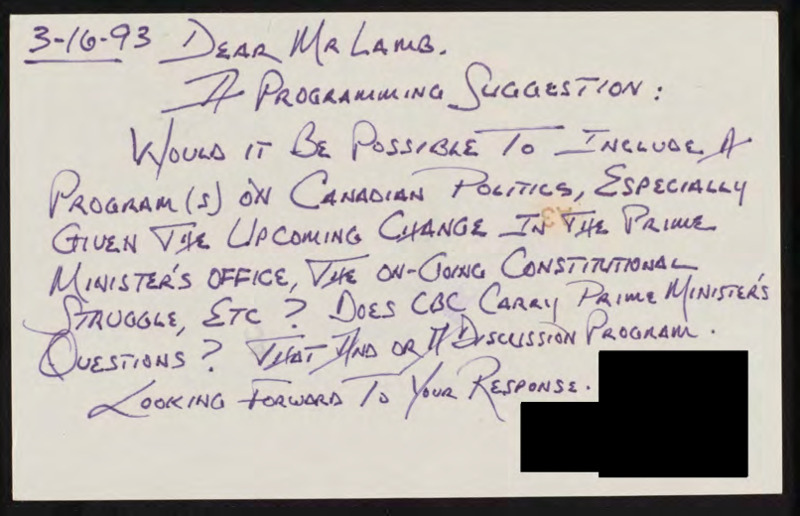 3-16-93 Dear Mr Lamb.
A Programming Suggestion:
Would it Be Possible To Include A
Program(s) on Canadian Politics, Especially
Given The Upcoming Change In The Prime
Minister's office, The on-Going Constitutional
Struggle, Etc? Does CBC Carry Prime Minister's
Questions? That And or A Discussion Program.
Looking Forward To Your Response.